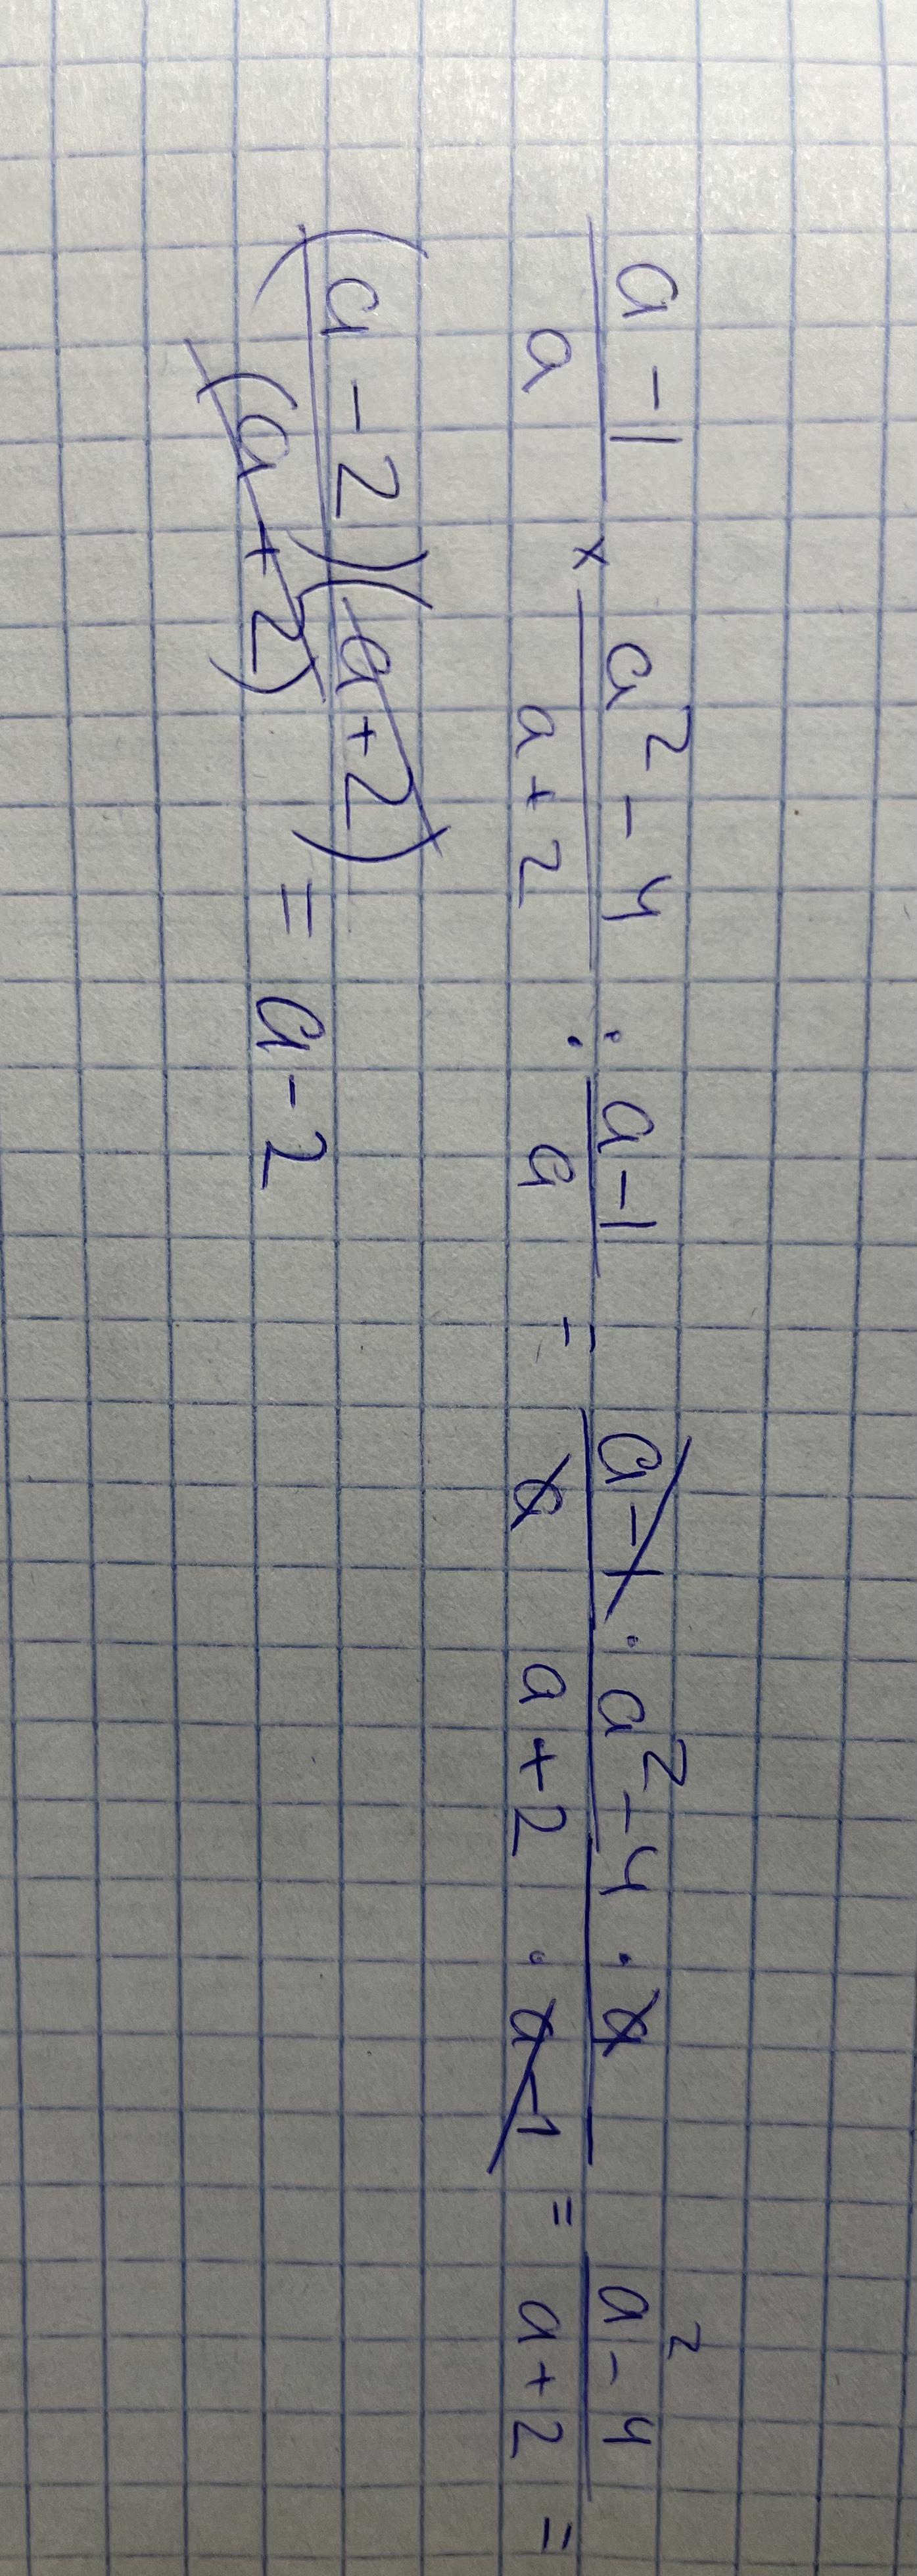 (a-1)/a × (a²-4)/(a+2) : (a-1)/a = (a-1 · a²-4 · a)/(a a+2 · a-1) = (a²-4)/(a+2) =
((a-2)(a+2))/(a+2) = a-2